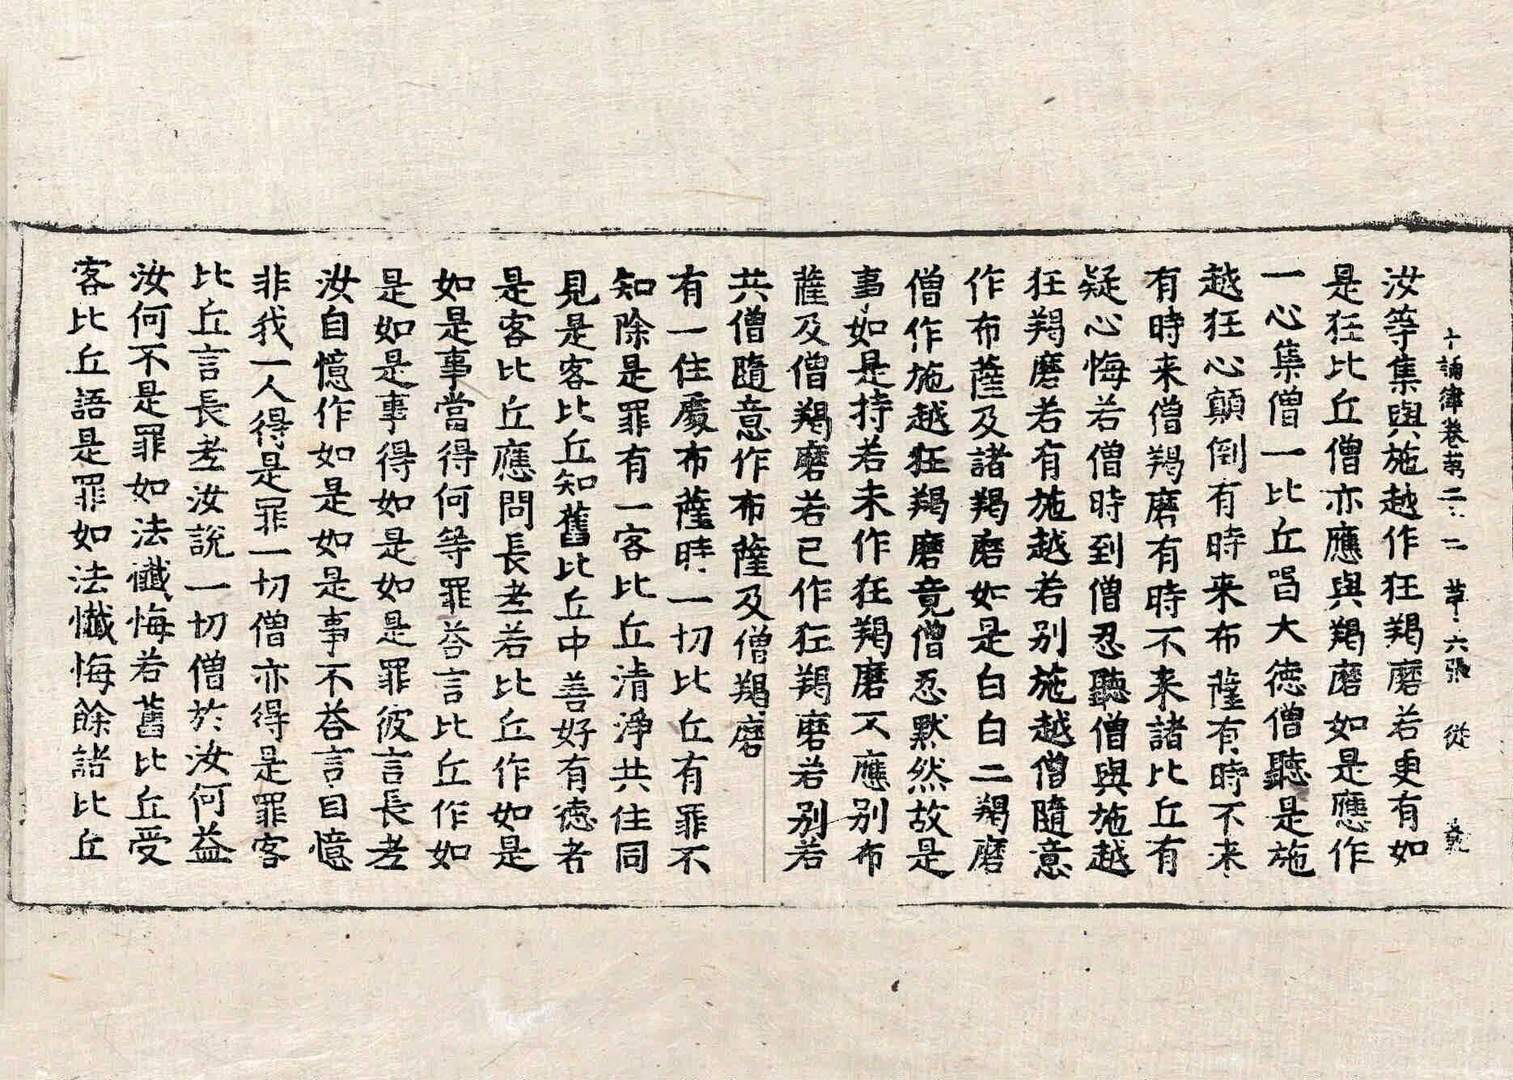 十誦律卷第二二 草 六張 從 義
汝等集與施越作狂羯磨若更有如
是狂比丘僧亦應與羯磨如是應作
一心集僧一比丘唱大德僧聽是施
越狂心顛倒有時来布薩有時不来
有時来僧羯磨有時不来諸比丘有
疑心悔若僧時到僧忍聽僧與施越
狂羯磨若有施越若別施越僧隨意
作布薩及諸羯磨如是白白二羯磨
僧作施越狂羯磨竟僧忍默然故是
事如是持若未作狂羯磨不應別布
薩及僧羯磨若已作狂羯磨若別若
共僧隨意作布薩及僧羯磨
有一住處布薩時一切比丘有罪不
知除是罪有一客比丘清淨共住同
見是客比丘知舊比丘中善好有德者
是客比丘應問長老若比丘作如是
如是事當得何等罪荅言比丘作如
是如是事得如是如是罪彼言長老
汝自憶作如是如是事不荅言自憶
非我一人得是罪一切僧亦得是罪客
比丘言長老汝說一切僧於汝何益
汝何不是罪如法懺悔若舊比丘受
客比丘語是罪如法懺悔餘諸比丘